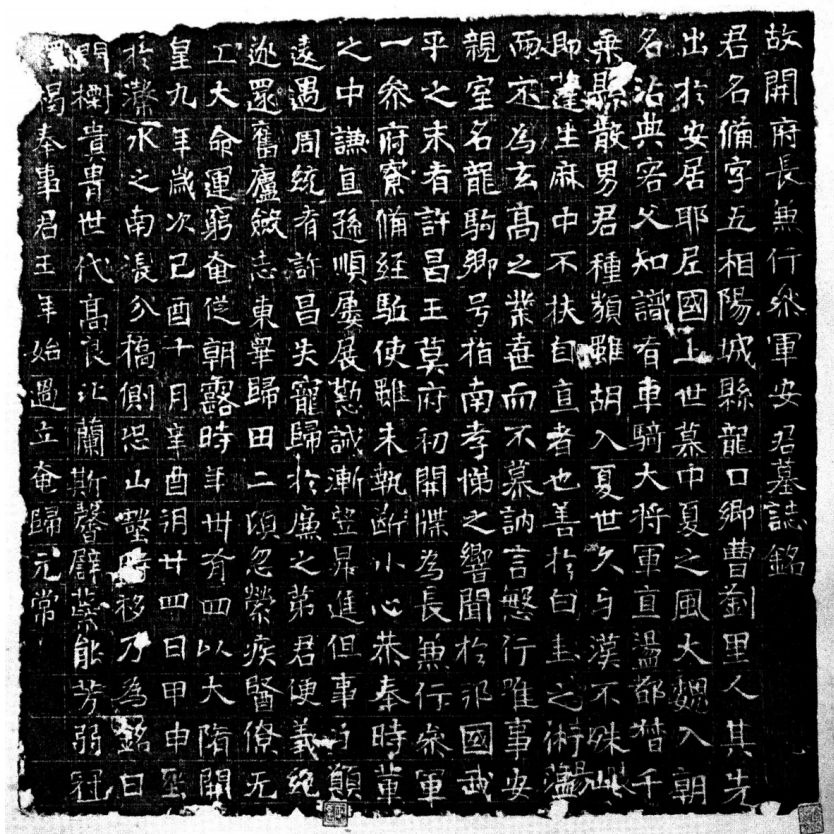 故開府長兼行参軍安君墓誌銘
君名備字五相陽城縣龍口鄉曹劉里人其先
出於安居耶尼國上世慕中夏之風大魏入朝
名沾典客父知識者車騎大将軍直盪都督千
乘縣散男君種類雖胡入夏世久与漢不殊此
即蓬生麻中不扶自直者也善於白圭之術蘊
而不為玄髙之業弃而不慕訥言慜行唯事安
親室名龍駒鄉号指南孝悌之響聞於邦國武
平之末者許昌王莫府初開牒為長兼行参軍
一参府寮備經駈使雖未執断小心恭奉時輩
之中謙直遜順屡展懃誠漸登昇進但事与願
違遇周統齊許昌失寵歸於廉之第君便義絶
遊還舊廬斂志東畢歸田二頃忽縈疾醫僚无
工大命運窮奄従朝露時年卅有四以大隋開
皇九年歲次己酉十月辛酉朔廿四日甲申𦵏
於瀍水之南張分橋側恐山壑時移乃為銘曰
門樹貴胄世代髙良比蘭斯馨譬蘂能芳弱冠
釋褐奉事君王年始過立奄歸元常